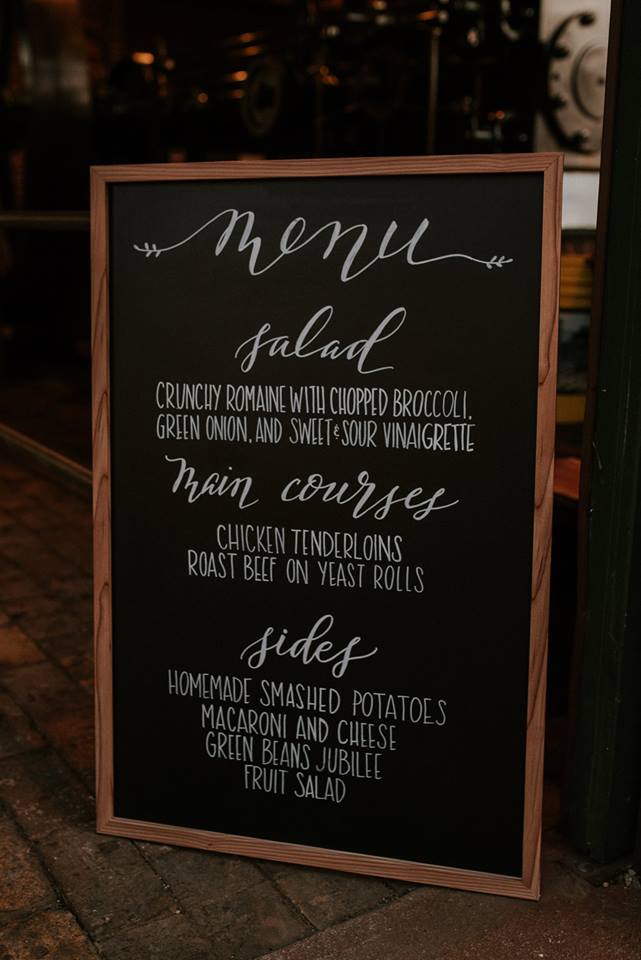 menu
salad
CRUNCHY ROMAINE WITH CHOPPED BROCCOLI,
GREEN ONION, AND SWEET & SOUR VINAIGRETTE
Main courses
CHICKEN TENDERLOINS
ROAST BEEF ON YEAST ROLLS
sides
HOMEMADE SMASHED POTATOES
MACARONI AND CHEESE
GREEN BEANS JUBILEE
FRUIT SALAD